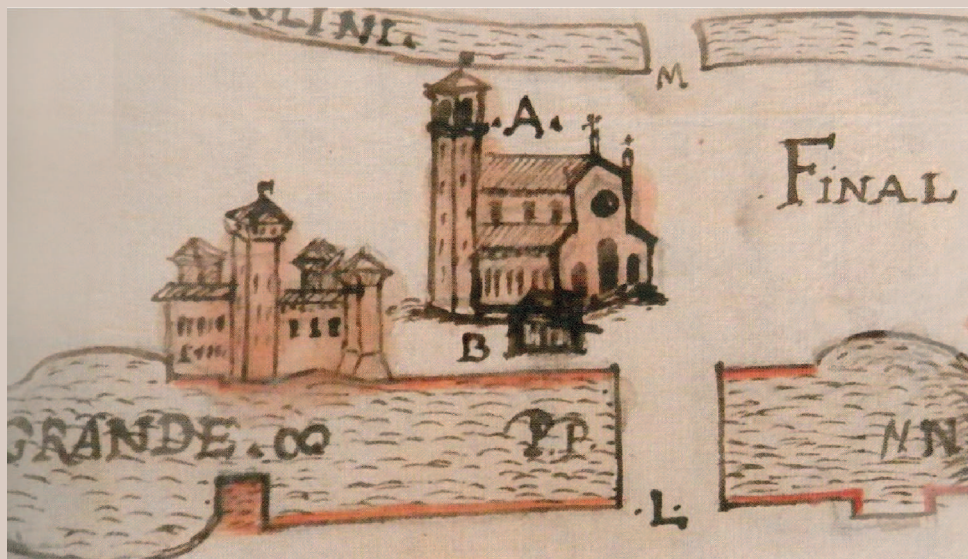 OLINI.
M
.A.
FINAL
B
GRANDE. OO
P.P.
NN
.L.